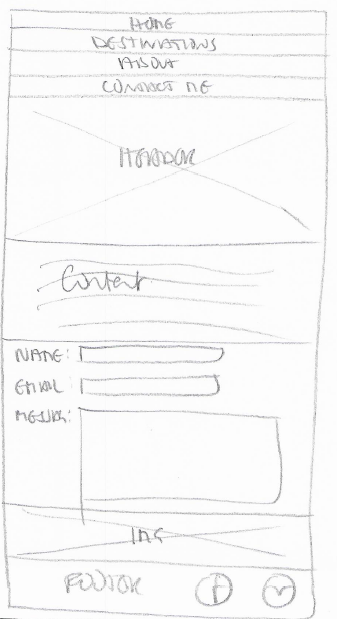 HOME
DESTINATIONS
ABOUT
CONTACT ME
HEADER
Content
NAME:
EMAIL
MESSAGE:
IMG
FOOTER f